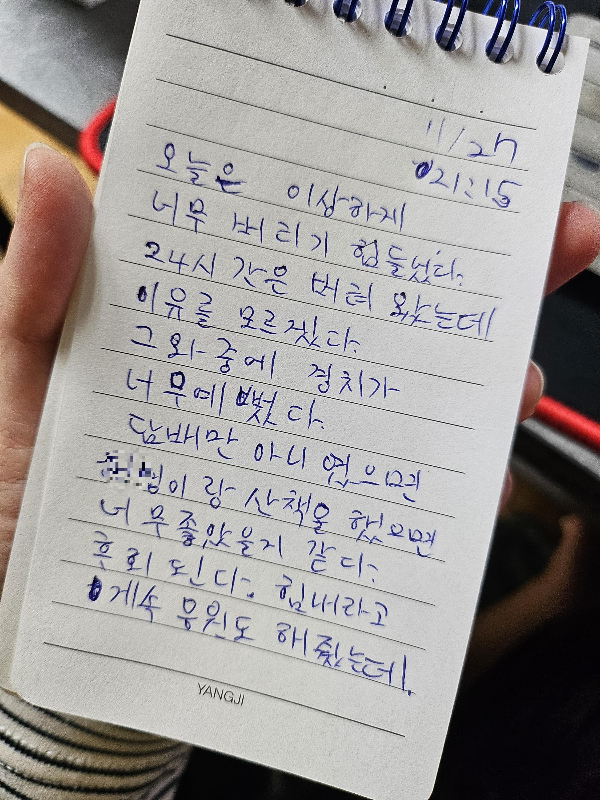 11/27
21:15
오늘은 이상하게
너무 버리기 힘들었다.
24시간은 버텨 왔는데
이유를 모르겠다.
그와중에 경치가
너무예뻤다.
담배만 아니였으면
이랑 산책을 했으면
너무좋았을거 같다.
후회 된다. 힘내라고
계속 응원도 해줬는데!
YANGJI